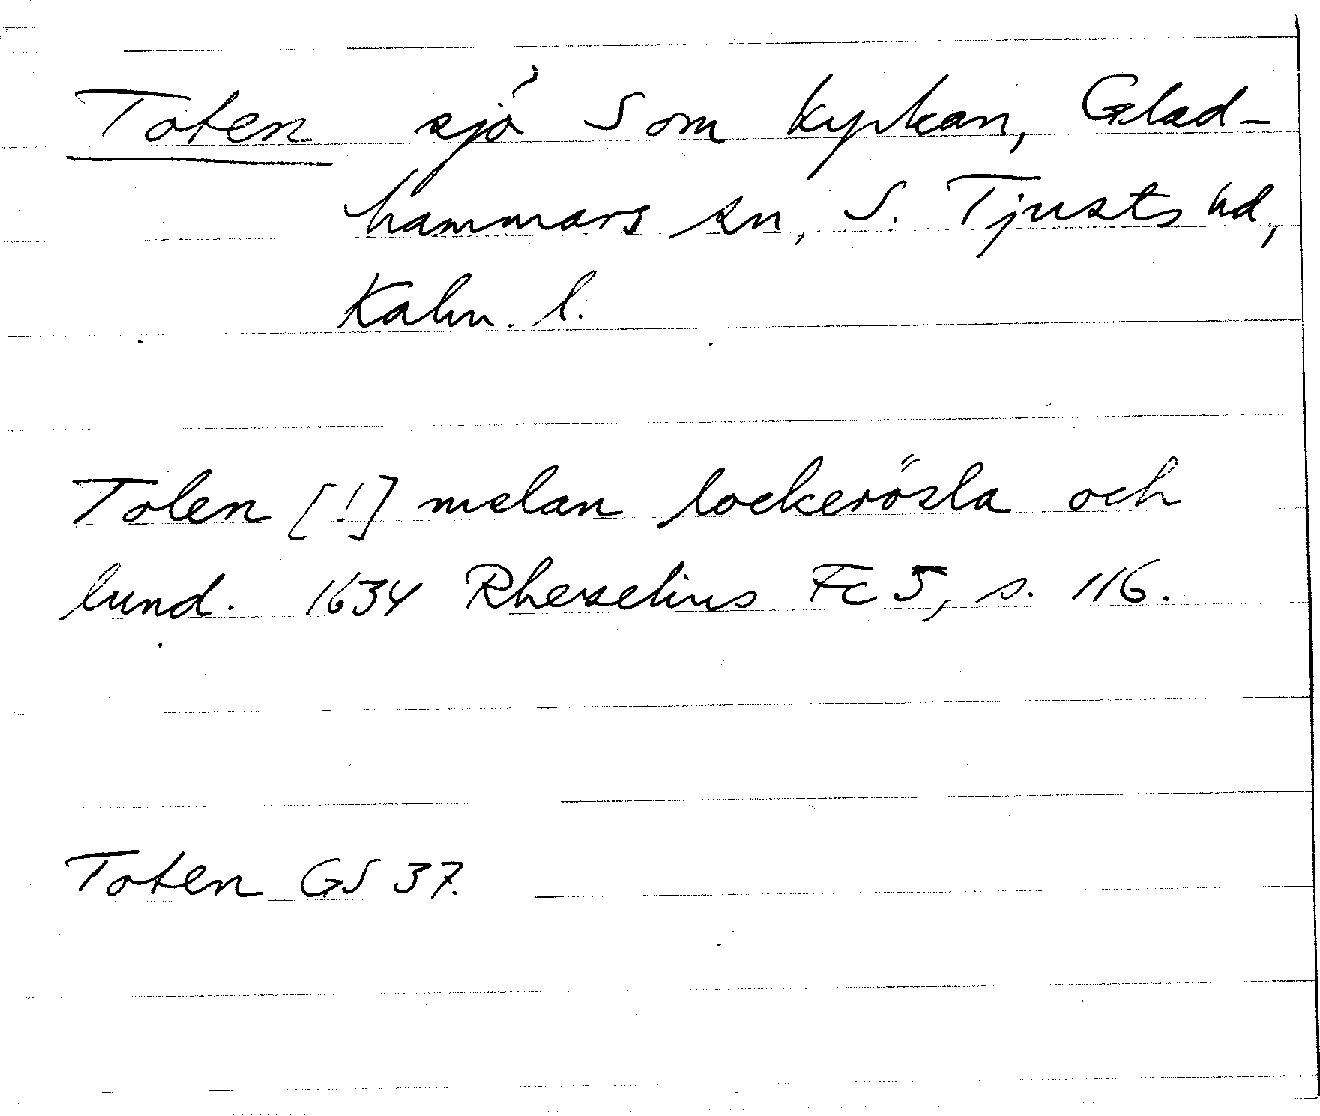 Toten sjö S om kyrkan, Glad-
hammars sn, S. Tjusts hd,
Kalm. l.
Tolen [!] melan lockerösla och
lund. 1634 Rhezelius Fc 5, s. 116.
Toten GS 37.